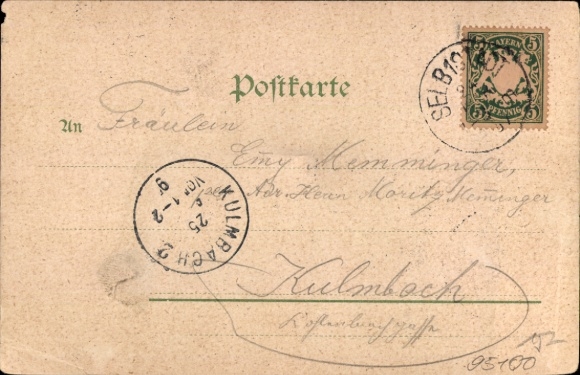 BAYERN
5 5
5 5
PFENNIG
SELB
Postkarte
An Fräulein
Emy Memminger
Adr. Herrn Moritz Memminger
KULMBACH 2
25
VOR 1-2
Kulmbach
95100